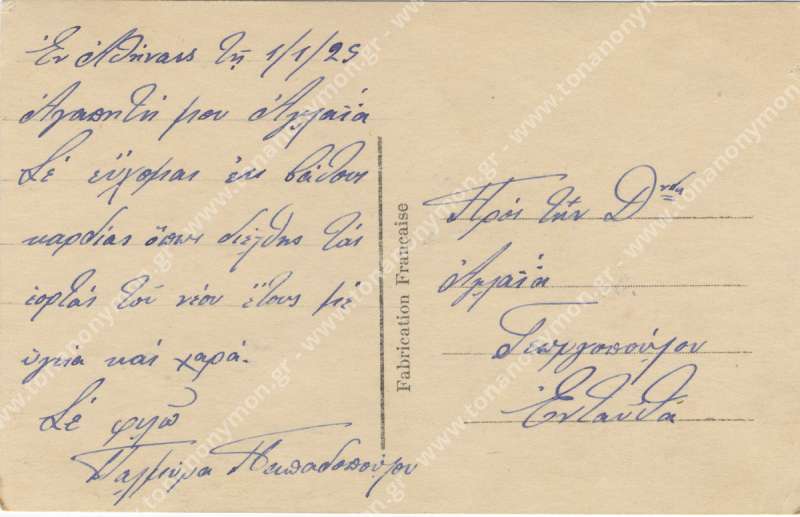 Ἐν Ἀθήναις τῇ 1/1/25
Ἀγαπητή μου Ἀγλαΐα
Σέ εὔχομαι ἐκ βάθους
καρδίας ὅπως διέλθης τάς
ἑορτάς τοῦ νέου ἔτους μέ
ὑγεία καί χαρά.
Σέ φιλῶ
Παλμύρα Παπαδοπούλου
Fabrication Française
Πρός τήν Δνίδα
Ἀγλαΐα
Γεωργοπούλου
Ἐνταῦθα
www.tonanonymon.gr